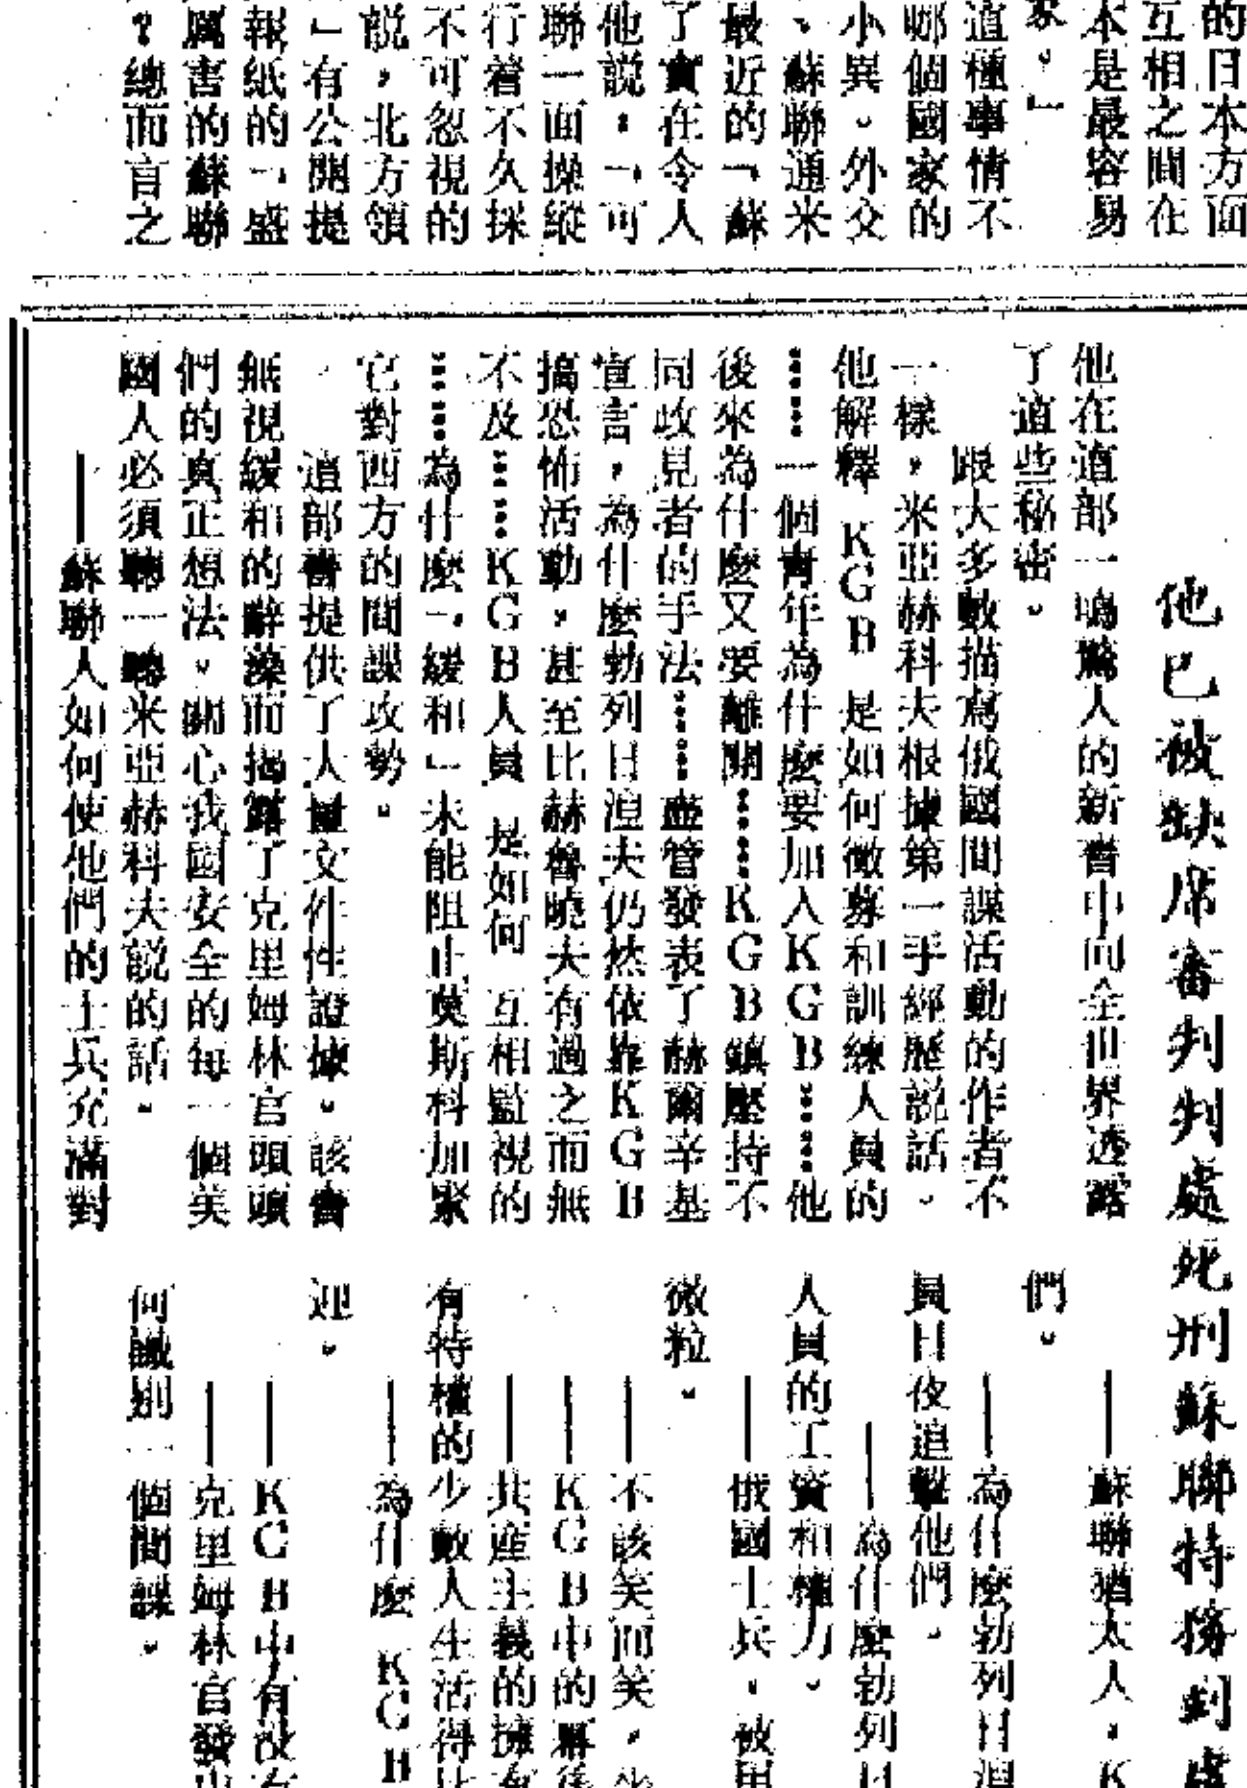 的日本方面
互相之間在
本是最容易
家。」
這種事情不
哪個國家的
小異。外交
、蘇聯通米
最近的「蘇
了實在令人
他説：「可
聯一面操縱
行着不久採
不可忽視的
説，北方領
」有公開提
報紙的「盛
厲害的蘇聯
？總而言之
他已被缺席審判判處死刑蘇聯特務到處
他在這部一鳴驚人的新書中向全世界透露
了這些秘密。
跟大多數描寫俄國間諜活動的作者不
一樣，米亞赫科夫根據第一手經歷説話。
他解釋KGB是如何徵募和訓練人員的
……一個青年為什麼要加入KGB……他
後來為什麼又要離開……KGB鎮壓持不
同政見者的手法……盡管發表了赫爾辛基
宣言，為什麼勃列日湼夫仍然依靠KGB
搞恐怖活動，甚至比赫魯曉夫有過之而無
不及……KGB人員是如何互相監視的
……為什麼「緩和」未能阻止莫斯科加緊
它對西方的間諜攻勢。
這部書提供了大量文件性證據。該書
無視緩和的辭藻而揭露了克里姆林宮頭頭
們的真正想法。關心我國安全的每一個美
國人必須聽一聽米亞赫科夫説的話。
——蘇聯人如何使他們的士兵充滿對
——蘇聯猶太人，K
們。
——為什麼勃列日湼
員日夜追擊他們。
——為什麼勃列日
人員的工資和權力。
——俄國士兵，被用
微粒。
——不該笑而笑，
——KGB中的幕後
——共産主義的擁有
有特權的少數人生活得比
——為什麼KGB
迎。
——KGB中有没有
——克里姆林宮發
何識别一個間諜。